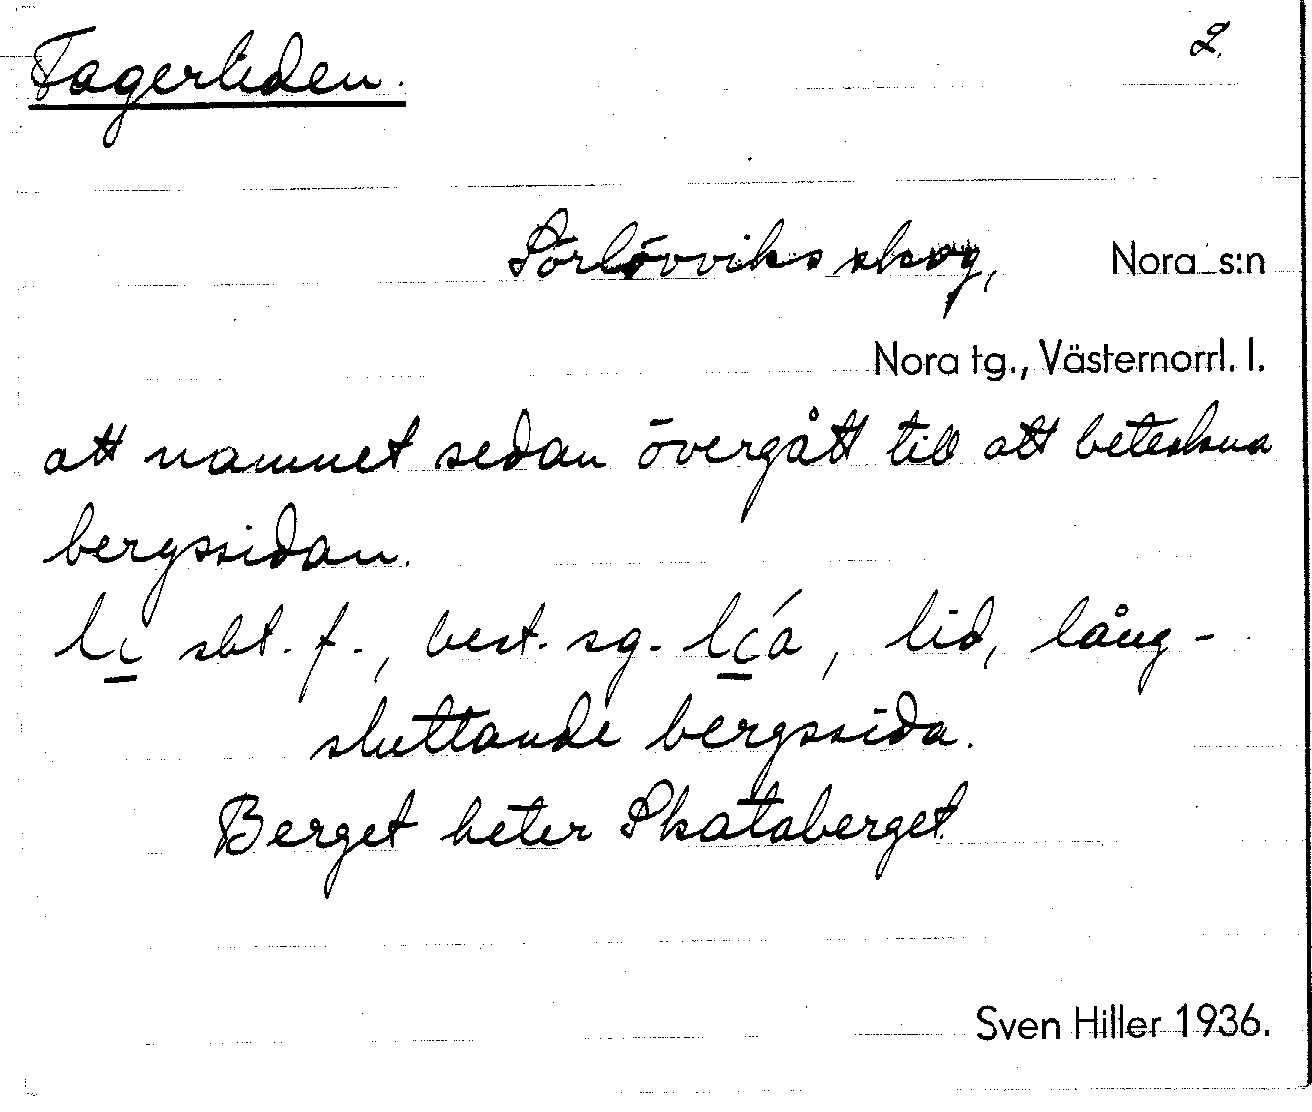 Fagerliden. 2.
Sörlövviks skog, Nora s:n
Nora tg., Västernorrl. l.
att namnet sedan övergått till att beteckna
bergssidan.
li̲ sbt. f., best. sg. lí̲a, lid, lång-
sluttande bergssida.
Berget heter Skataberget.
Sven Hiller 1936.